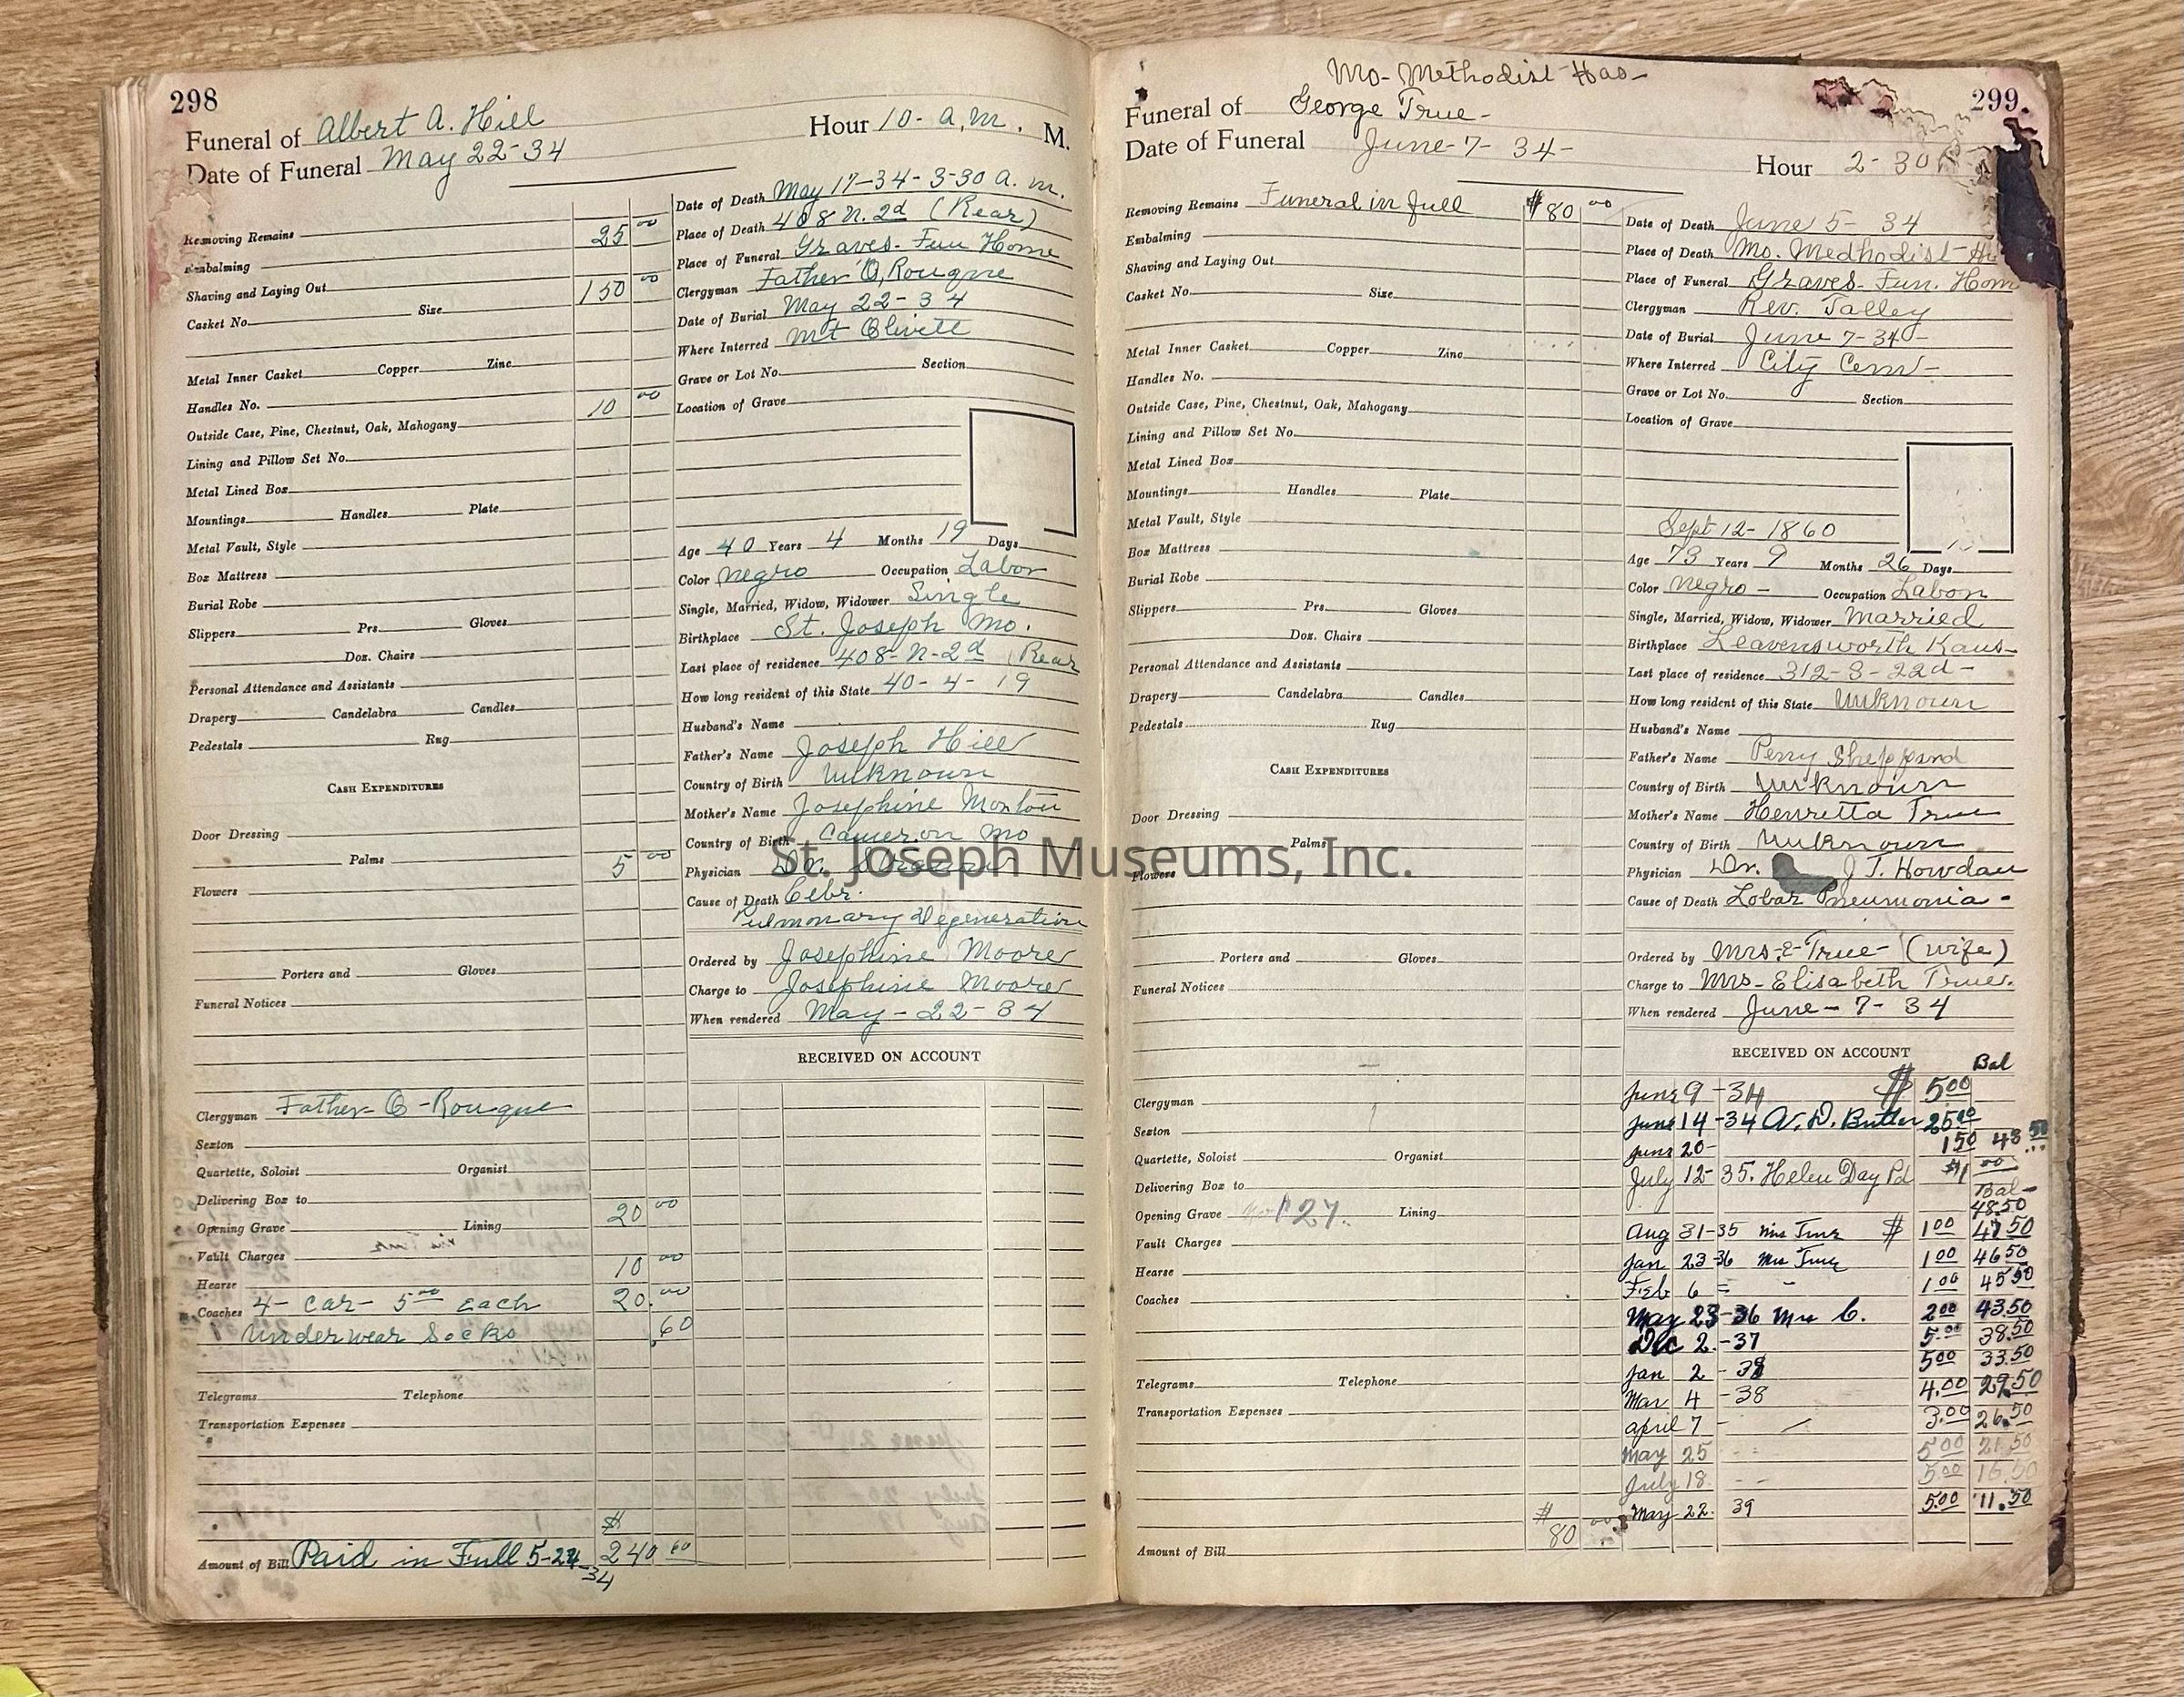 298
Funeral of Albert A. Hill Hour 10- a.m. M.
Date of Funeral May 22-34
Removing Remains 25 00
Embalming
Shaving and Laying Out 150 00
Casket No. Size
Metal Inner Casket Copper Zinc
Handles No. 10 00
Outside Case, Pine, Chestnut, Oak, Mahogany
Lining and Pillow Set No.
Metal Lined Box
Mountings Handles Plate
Metal Vault, Style
Box Mattress
Burial Robe
Slippers Prs. Gloves
Doz. Chairs
Personal Attendance and Assistants
Drapery Candelabra Candles
Pedestals Rug
CASH EXPENDITURES
Door Dressing
Palms 5 00
Flowers
Porters and Gloves
Funeral Notices
Clergyman Father O-Rougue
Sexton
Quartette, Soloist Organist
Delivering Box to
Opening Grave Lining 20 00
Vault Charges
Hearse 10 00
Coaches 4- car- 5 00 Each 20.00
Underwear Socks .60
Telegrams Telephone
Transportation Expenses
$
Amount of Bill Paid in Full 5-24-34 240 60
Date of Death May 17-34-3-30 a.m.
Place of Death 408 N. 2d (Rear)
Place of Funeral Graves- Fun Home
Clergyman Father O, Rougue
Date of Burial May 22-34
Where Interred Mt Olivett
Grave or Lot No. Section
Location of Grave
Age 40 Years 4 Months 19 Days
Color Negro Occupation Labor
Single, Married, Widow, Widower Single
Birthplace St. Joseph Mo.
Last place of residence 408-N-2d (Rear
How long resident of this State 40-4-19
Husband's Name
Father's Name Joseph Hill
Country of Birth Unknown
Mother's Name Josephine
Country of Birth Cameron Mo
Physician Dr.
Cause of Death
Pulmonary Degeneration
Ordered by Josephine Moore
Charge to Josephine Moore
When rendered May-22-34
RECEIVED ON ACCOUNT
Mo-Methodist Hos-
299
Funeral of George True-
Date of Funeral June-7-34- Hour 2-30
Removing Remains Funeral in full $80 00
Embalming
Shaving and Laying Out
Casket No. Size
Metal Inner Casket Copper Zinc
Handles No.
Outside Case, Pine, Chestnut, Oak, Mahogany
Lining and Pillow Set No.
Metal Lined Box
Mountings Handles Plate
Metal Vault, Style
Box Mattress
Burial Robe
Slippers Prs. Gloves
Doz. Chairs
Personal Attendance and Assistants
Drapery Candelabra Candles
Pedestals Rug
CASH EXPENDITURES
Door Dressing
Palms
Flowers
Porters and Gloves
Funeral Notices
Clergyman
Sexton
Quartette, Soloist Organist
Delivering Box to
Opening Grave 27. Lining
Vault Charges
Hearse
Coaches
Telegrams Telephone
Transportation Expenses
$
Amount of Bill 80 00
Date of Death June 5-34
Place of Death Mo. Medhodist-
Place of Funeral Graves-Fun. Hom
Clergyman Rev. Talley
Date of Burial June 7-34-
Where Interred City Cem-
Grave or Lot No. Section
Location of Grave
Sept 12-1860
Age 73 Years 9 Months 26 Days
Color Negro- Occupation Labor
Single, Married, Widow, Widower Married
Birthplace Leavensworth Kans-
Last place of residence 312-S-22d-
How long resident of this State Unknown
Husband's Name
Father's Name Perry Sheppard
Country of Birth Unknown
Mother's Name Henretta True
Country of Birth Unknown
Physician Dr. J.T. Howdan
Cause of Death Lobar Pneumonia-
Ordered by Mrs. E-True-(wife)
Charge to Mrs-Elisabeth True.
When rendered June-7-34
RECEIVED ON ACCOUNT
Bal
June 9-34 $ 5 00
June 14-34 A. D. Butler 25 00
June 20- 1 50 48 50
July 12-35. Helen Day Pd $1 00
Bal-
48.50
Aug 31-35 Mrs True $ 1 00 47 50
Jan 23-36 Mrs True 1 00 46 50
Feb 6 = " 1 00 45 50
May 23-36 Mrs C. 2 00 43.50
Dec 2.-37 5.00 38.50
Jan 2-38 5 00 33.50
Mar 4-38 4.00 29.50
April 7 - 3.00 26.50
May 25 - 5 00 21.50
July 18 - - 5.00 16.50
May 22. 39 5.00 11.50
St. Joseph Museums, Inc.